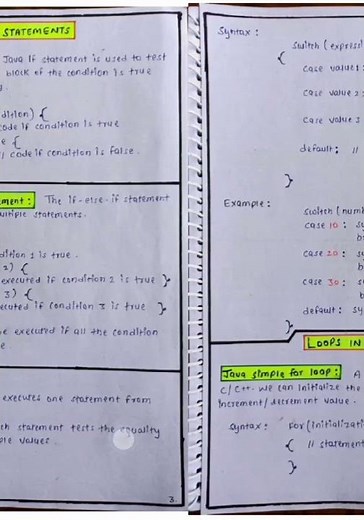 STATEMENTS
Java If statement is used to test
block if the condition is true
dition) {
code if condition is true
e {
// code if condition is false.
ement: The if-else-if statement
ultiple statements.
dition 1 is true.
2) {
executed if condition 2 is true }
3) {
ecuted if condition 3 is true }
be executed if all the condition
e
executes one statement from
ch statement tests the equality
ple values.
3.
Syntax:
switch (express
{
case value1:
case value 2:
case value 3
default: //
}
Example:
switch (num
case 10: sy
b
case 20: s
b
case 30: s
b
default: sy
}
LOOPS IN
Java simple for loop: A
C/C++. we can initialize the
increment/decrement value.
syntax: for (initializati
{ // statement
}